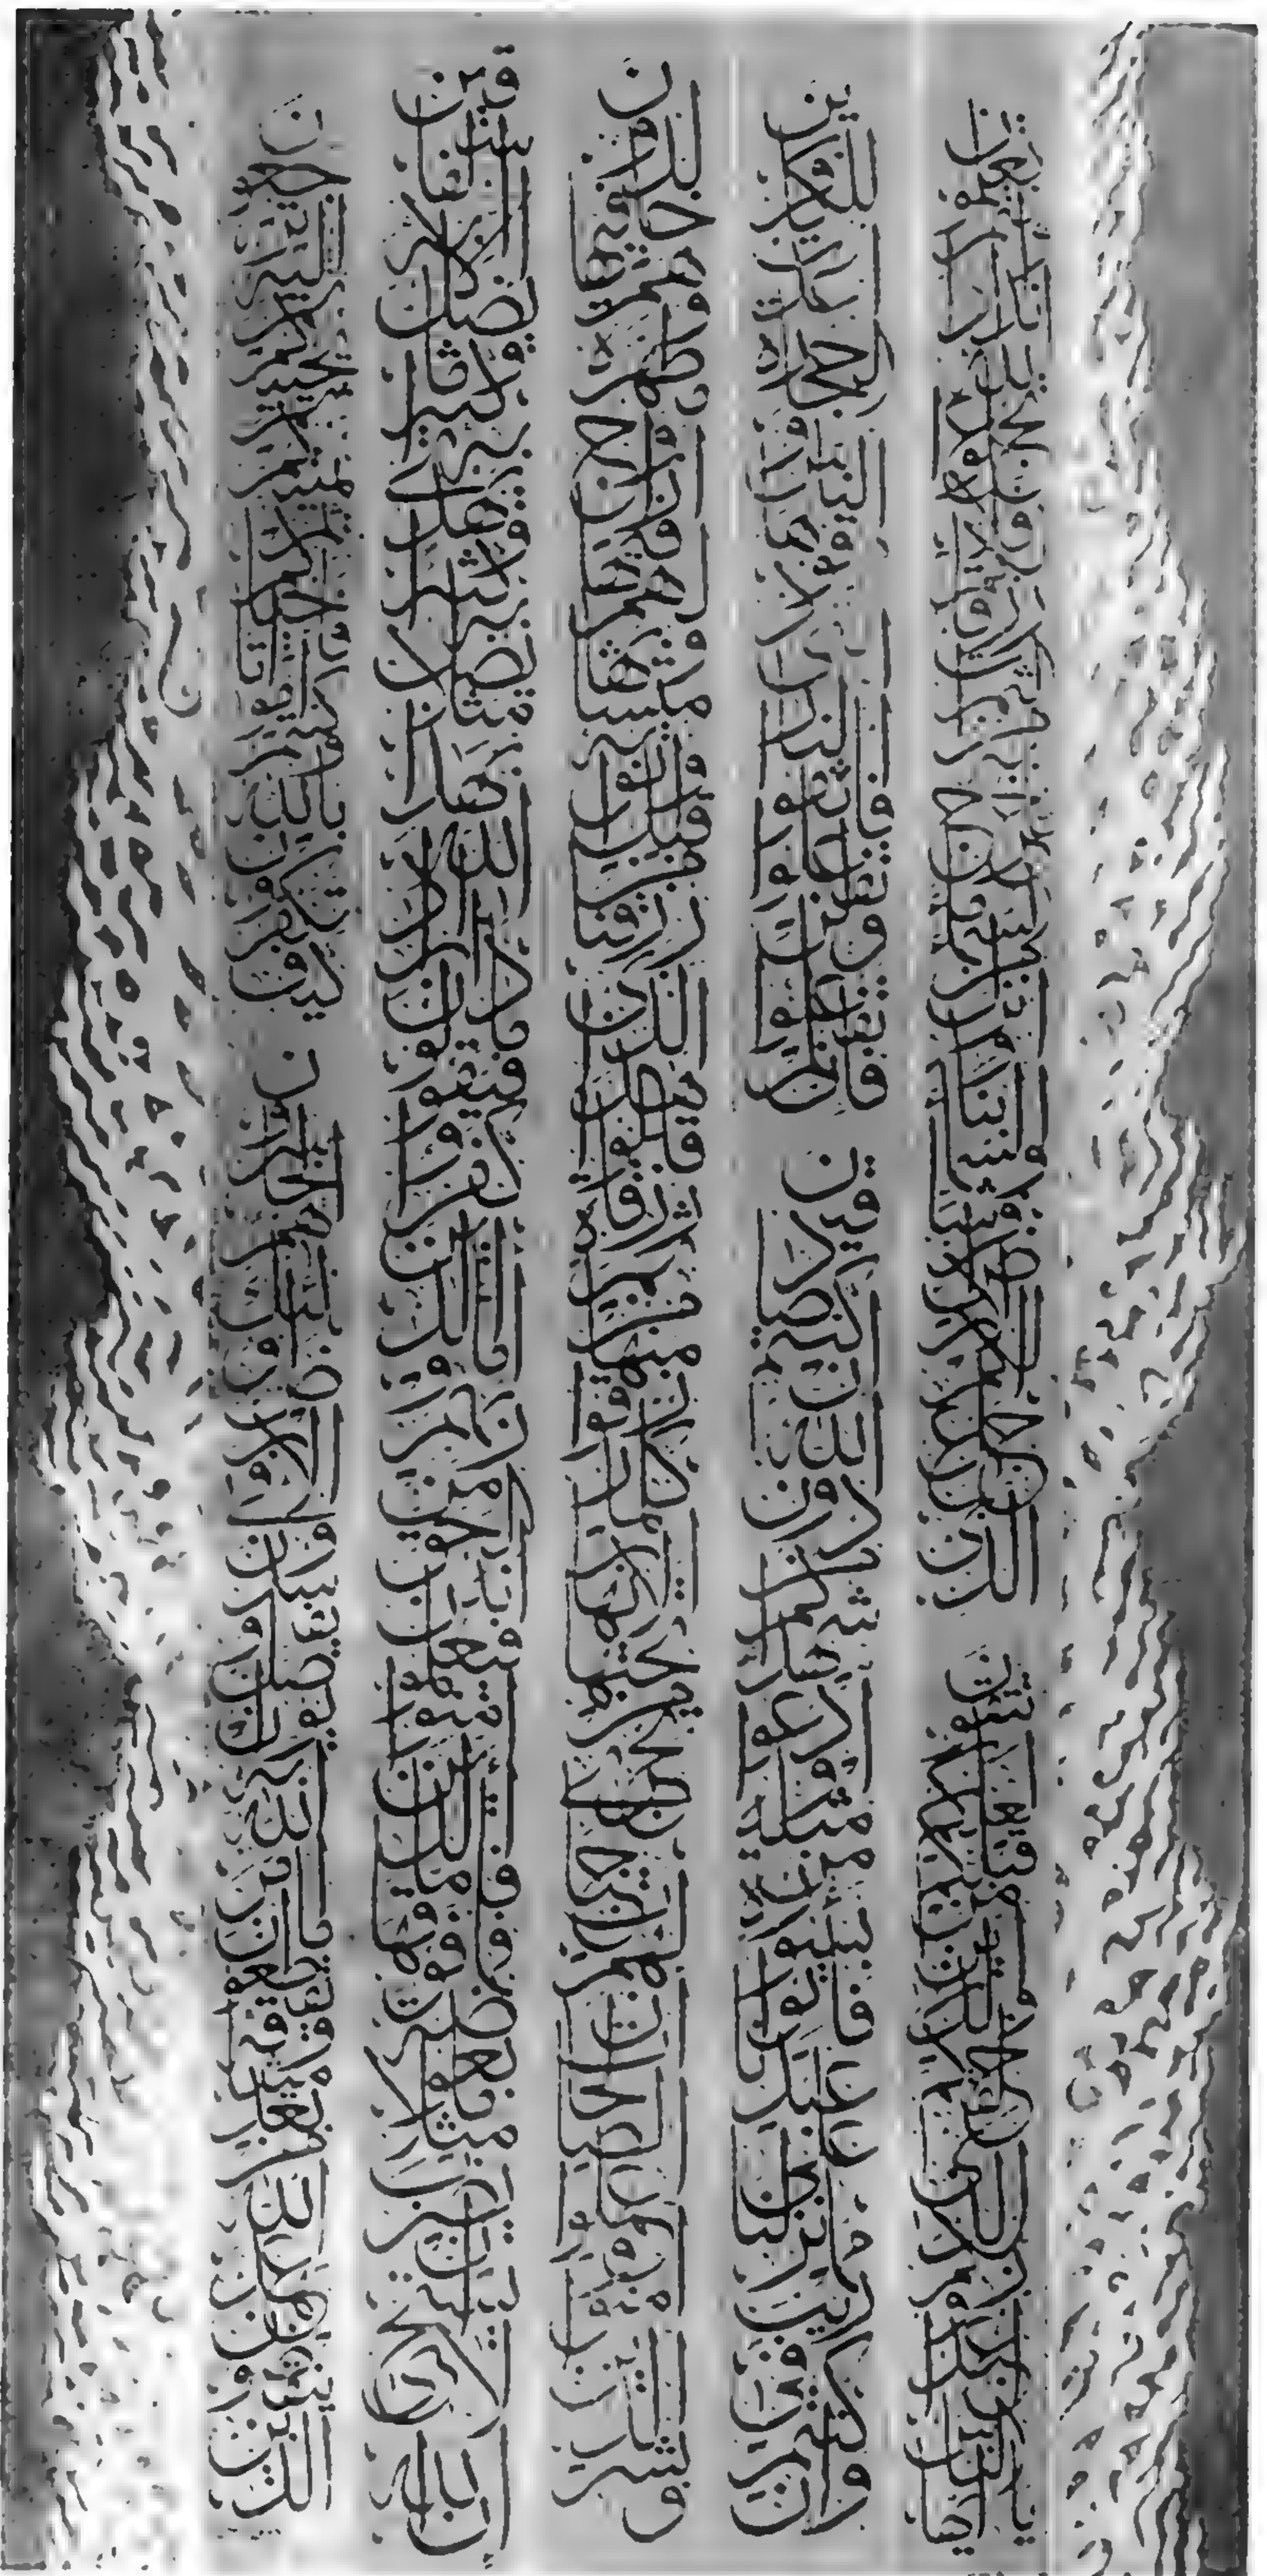 يا أيها الناس اعبدوا ربكم الذي خلقكم والذين من قبلكم لعلكم تتقون الذي جعل لكم الأرض فراشا والسماء بناء وأنزل من السماء ماء فأخرج به من الثمرات رزقا لكم فلا تجعلوا لله أندادا وأنتم تعلمون
وإن كنتم في ريب مما نزلنا على عبدنا فأتوا بسورة من مثله وادعوا شهداءكم من دون الله إن كنتم صادقين فإن لم تفعلوا ولن تفعلوا فاتقوا النار التي وقودها الناس والحجارة أعدت للكافرين
وبشر الذين آمنوا وعملوا الصالحات أن لهم جنات تجري من تحتها الأنهار كلما رزقوا منها من ثمرة رزقا قالوا هذا الذي رزقنا من قبل وأتوا به متشابها ولهم فيها أزواج مطهرة وهم فيها خالدون
إن الله لا يستحيي أن يضرب مثلا ما بعوضة فما فوقها فأما الذين آمنوا فيعلمون أنه الحق من ربهم وأما الذين كفروا فيقولون ماذا أراد الله بهذا مثلا يضل به كثيرا ويهدي به كثيرا وما يضل به إلا الفاسقين
الذين ينقضون عهد الله من بعد ميثاقه ويقطعون ما أمر الله به أن يوصل ويفسدون في الأرض أولئك هم الخاسرون كيف تكفرون بالله وكنتم أمواتا فأحياكم ثم يميتكم ثم يحييكم ثم إليه ترجعون